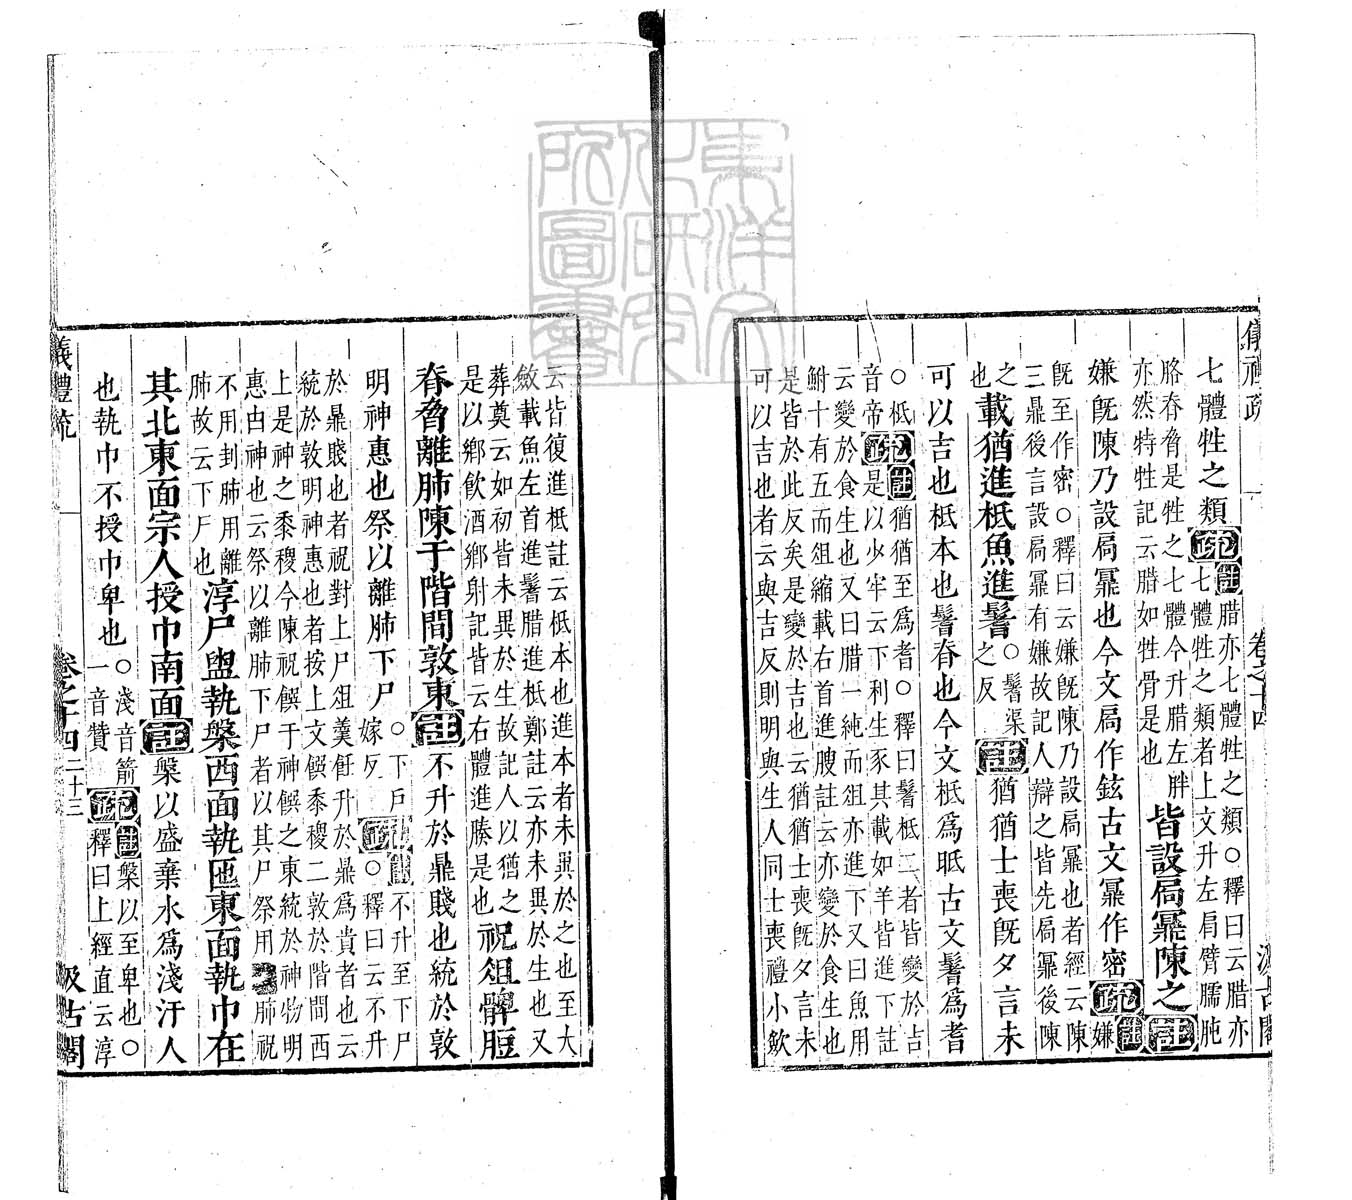 儀禮疏 卷之十四 汲古閣
七體牲之類疏註腊亦七體牲之類○釋曰云腊亦
七體牲之類者上文升左肩臂臑肫
胳脊脅是牲之七體今升腊左胖
亦然特牲記云腊如牲骨是也皆設扃鼏陳之註
嫌旣陳乃設扃鼏也今文扃作鉉古文鼏作密疏註嫌
旣至作密○釋曰云嫌旣陳乃設扃鼏也者經云陳
三鼎後言設扃鼏有嫌故記人辯之皆先扃鼏後陳
之也載猶進柢魚進鬐○鬐渠之反註猶猶士喪旣夕言未
可以吉也柢本也鬐脊也今文柢爲胝古文鬐爲耆
○柢音帝疏註猶猶至爲耆○釋曰鬐柢二者皆變於吉
是以少牢云下利生豕其載如羊皆進下註
云變於食生也又曰腊一純而俎亦進下又曰魚用
鮒十有五而俎縮載右首進腴註云亦變於食生
是皆於此反矣是變於吉也云猶猶士喪旣夕言未
可以吉也者云與吉反則明與生人同士喪禮小斂
云皆復進柢註云柢本也進本者未異於之也至大
斂載魚左首進鬐腊進柢鄭註云亦未異於生也又
葬奠云如初皆未異於生故記人以猶之
是以鄉飲酒鄉射記皆云右體進腠是也祝俎髀脰
脊脅離肺陳于階間敦東註不升於鼎賤也統於敦
明神惠也祭以離肺下尸○下戶嫁反疏註不升至下尸○釋曰云不升
於鼎賤也者祝對上尸俎羹飪升於鼎爲貴者也云
統於敦明神惠也者按上文饌黍稷二敦於階間西
上是神之黍稷今陳祝饌于神饌之東統於神物明
惠由神也云祭以離肺下尸者以其尸祭用肺祝
不用刲肺用離
肺故云下尸也淳尸盥執槃西面執匜東面執巾在
其北東面宗人授巾南面註槃以盛棄水爲淺汙人
也執巾不授巾卑也○淺音箭一音贊疏註槃以至卑也○
釋曰上經直云淳
儀禮疏 卷之十四 二十三 汲古閣
東洋文化研究所圖書